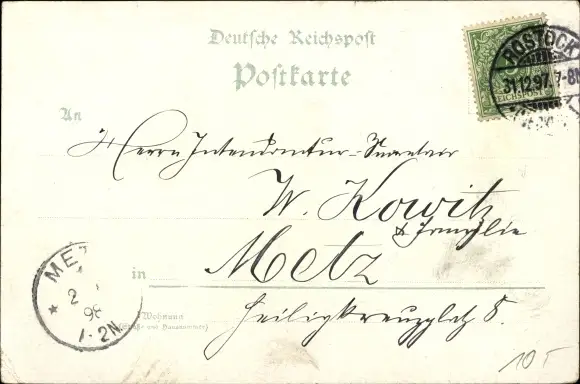 Deutsche Reichspost
Postkarte
ROSTOCK
31.12.97. 7-8N
REICHSPOST
An
Herrn Intendantur-Secretair
W. Kowitz
& Familie
in Metz
Heiligkreuzplatz 5.
Wohnung
(Straße und Hausnummer)
METZ
2
98
1-2N
10